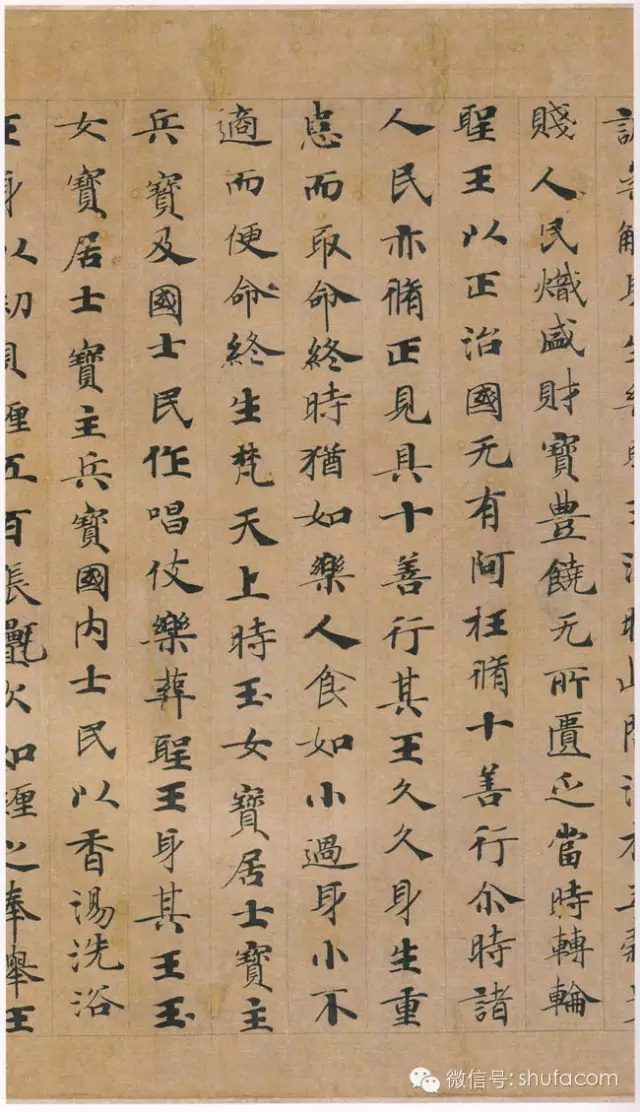 賤人民熾盛財寶豊饒无所匱乏當時轉輪
聖王以正治國无有阿枉脩十善行尒時諸
人民亦脩正見具十善行其王久久身生重
患而取命終時猶如樂人食如小過身小不
適而便命終生梵天上時玉女寶居士寶主
兵寶及國士民作唱伎樂葬聖王身其王玉
女寶居士寶主兵寶國內士民以香湯洗浴
王身以劫貝纏五百張㲲次如纏之奉舉王
微信号: shufacom